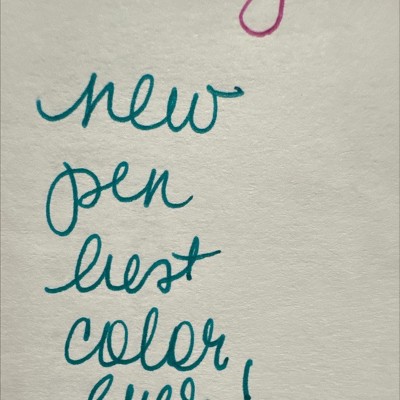 new
pen
best
color